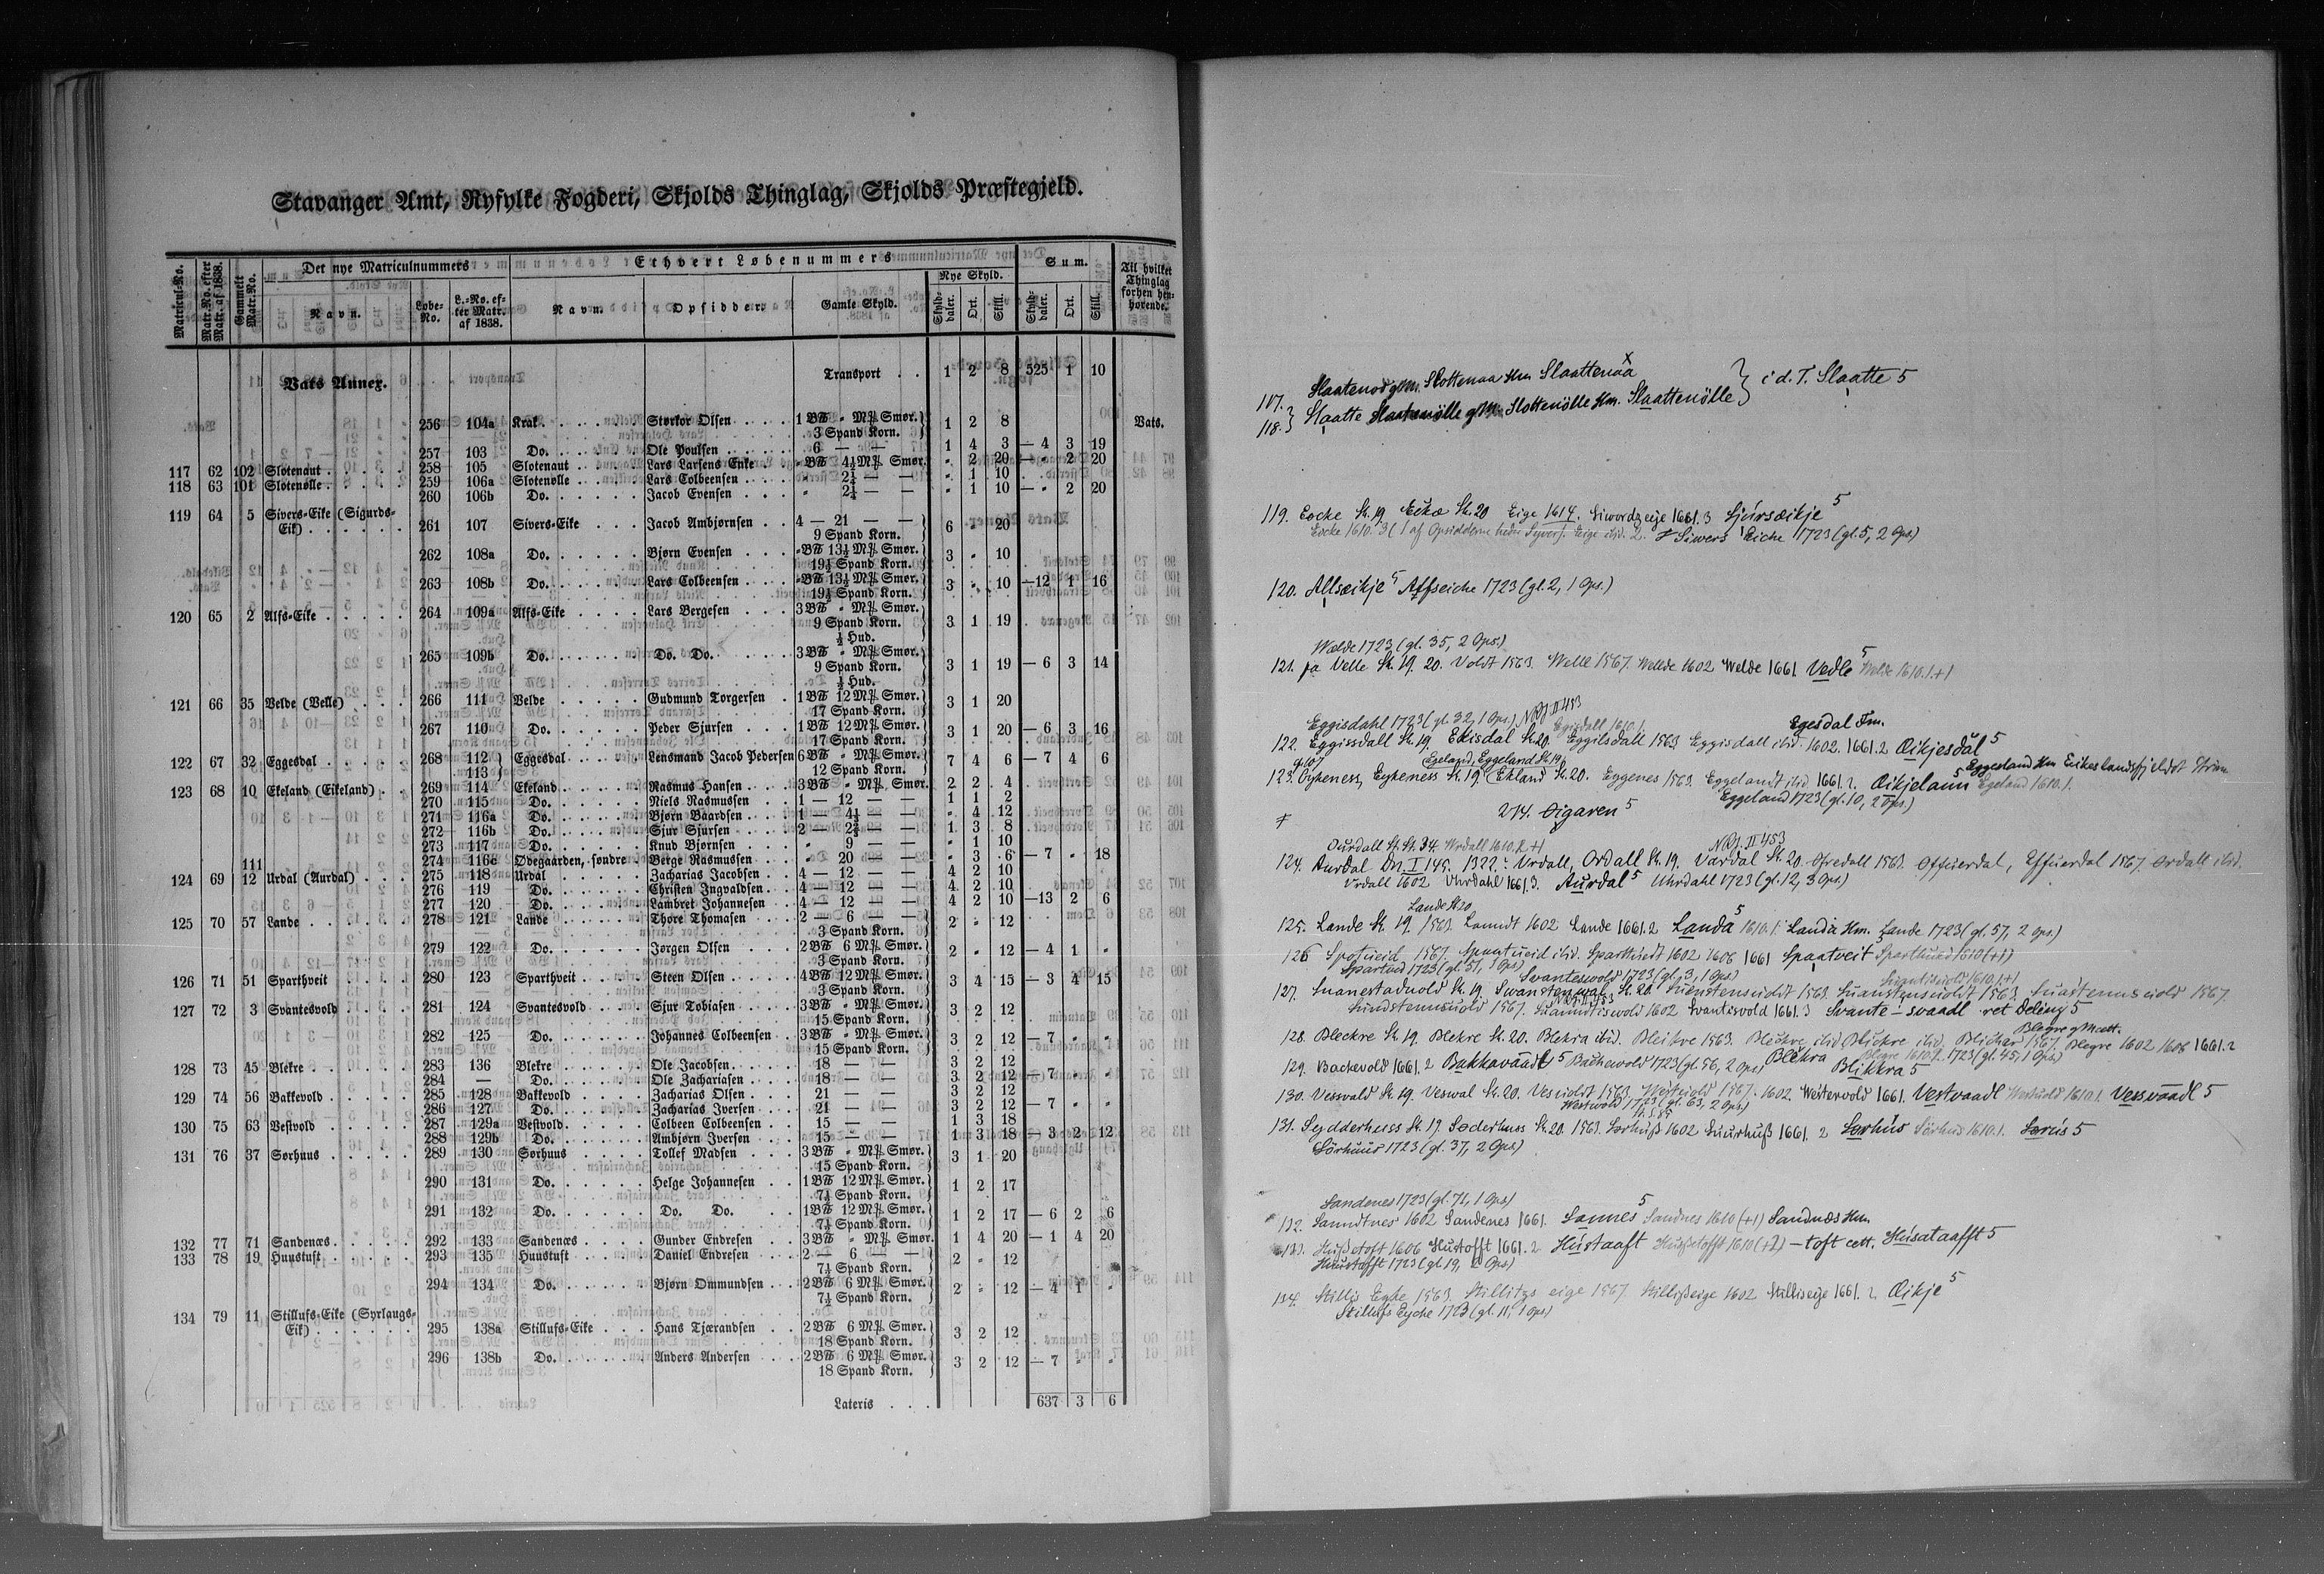 Stavanger Amt, Ryfylke Fogderi, Skjolds Thinglag, Skjolds Præstegjeld.
Matricul-No. Matr.No. efter Matr. af 1838. Gammelt Matr.No. Det nye Matriculnummers Ethvert Løbenummers Sum. Til hvilket Thinglag forhen henhørende.
Navn. Løbe-No. L.-No. efter Matr. af 1838. Navn. Opsidder. Gamle Skyld. Nye Skyld. Skylddaler. Ort. Skill. Skylddaler. Ort. Skill.
Vats Annex. Transport . . 1 2 8 525 1 10
256 104a Krak . . . Størkor Olsen . . . 1 BW „ Mk Smør. 1 2 8 Vats.
3 Spand Korn.
257 103 Do. . . . Ole Poulsen . . . 6 — — 1 4 3 — 4 3 19
117 62 102 Slotenaut . . . 258 105 Slotenaut Lars Larsens Enke . . „ BW 4½ Mk Smør. „ 2 20 — „ 2 20
118 63 101 Slotenølle . . . 259 106a Slotenølle . . . Lars Tolbeensen . . . „ 2¼ — — „ 1 10
260 106b Do. . . . Jacob Evensen . . . „ 2¼ — — „ 1 10 — „ 2 20
119 64 5 Sivers-Eike (Sigurds-
Eik) . . . 261 107 Sivers-Eike . . . Jacob Ambjørnsen . . 4 — 21 — — 6 „ 20
9 Spand Korn.
262 108a Do. . . . Bjørn Evensen . . . „ BW 13½ Mk Smør. 3 „ 10
19½ Spand Korn.
263 108b Do. . . . Lars Tolbeensen . . . „ BW 13½ Mk Smør. 3 „ 10 —12 1 16
19½ Spand Korn.
120 65 2 Alfs-Eike . . . 264 109a Alfs-Eike . . . Lars Bergesen . . . 3 BW „ Mk Smør. 3 1 19
9 Spand Korn.
½ Hud.
265 109b Do. . . . Do. Do. . . . 3 BW „ Mk Smør. 3 1 19 — 6 3 14
9 Spand Korn.
½ Hud.
121 66 35 Velde (Velle) . . . 266 111 Velde . . . Gudmund Torgersen . . 1 BW 12 Mk Smør. 3 1 20
17 Spand Korn.
267 110 Do. . . . Peder Sjursen . . . 1 BW 12 Mk Smør. 3 1 20 — 6 3 16
17 Spand Korn.
122 67 32 Eggesdal . . . 268 112 113 Eggesdal . . . Lensmand Jacob Pedersen 6 BW „ Mk Smør. 7 4 6 — 7 4 6
12 Spand Korn.
123 68 10 Ekeland (Eikeland) . . 269 114 Ekeland . . . Rasmus Hansen . . . 3 BW „ Mk Smør. 2 2 4
270 115 Do. . . . Niels Rasmussen . . 1 — 12 — — 1 1 2
271 116a Do. . . . Bjørn Baardsen . . . 1 — 4½ — — „ 4 12
272 116b Do. . . . Sjur Sjursen . . . 2 — 2¾ — — 1 3 8
273 117 Do. . . . Knud Bjørnsen . . . „ 9 — — „ 1 10
111 274 116c Ødegaarden, søndre Berge Rasmussen . . . „ 20 — — „ 3 6 — 7 „ 18
124 69 12 Urdal (Aurdal) . . . 275 118 Urdal . . . Zacharias Jacobsen . . 4 — 12 — — 4 2 10
276 119 Do. . . . Christen Ingvaldsen . . 4 — 12 — — 4 2 10
277 120 Do. . . . Lambret Johannesen . . 4 — 12 — — 4 2 10 —13 2 6
125 70 57 Lande . . . 278 121 Lande . . . Thore Thomasen . . . 2 — 6 — — 2 „ 12
3 Spand Korn.
279 122 Do. . . . Jørgen Olsen . . . 2 BW 6 Mk Smør. 2 „ 12 — 4 1 „
3 Spand Korn.
126 71 51 Sparthveit . . . 280 123 Sparthveit . . . Steen Olsen . . . 4 BW 12 Mk Smør. 3 4 15 — 3 4 15
3 Spand Korn.
127 72 3 Svantesvold . . . 281 124 Svantesvold . . . Sjur Tobiasen . . . 3 BW „ Mk Smør. 3 2 12
15 Spand Korn.
282 125 Do. . . . Johannes Tolbeensen . . 3 BW „ Mk Smør. 3 2 12 — 7 „ „
15 Spand Korn.
128 73 45 Blekre . . . 283 136 Blekre . . . Ole Jacobsen . . . 18 — — 3 2 12
284 — Do. . . . Ole Zachariasen . . . 18 — — 3 2 12 — 7 „ „
129 74 56 Bakkevold . . . 285 128 Bakkevold . . . Zacharias Olsen . . . 21 — — 3 2 12
286 127 Do. . . . Zacharias Iversen . . . 21 — — 3 2 12 — 7 „ „
130 75 63 Vestvold . . . 287 129a Vestvold . . . Tolbeen Tolbeensen . . 15 — — 1 3 18
288 129b Do. . . . Ambjørn Iversen . . . 15 — — 1 3 18 — 3 2 12
131 76 37 Sørhuus . . . 289 130 Sørhuus . . . Tollef Madsen . . . 3 BW „ Mk Smør. 3 1 20
15 Spand Korn.
290 131 Do. . . . Helge Johannesen . . . 1 BW 12 Mk Smør. 1 2 17
7½ Spand Korn.
291 132 Do. . . . Do. Do. . . . 1 BW 12 Mk Smør. 1 2 17 — 6 2 6
7½ Spand Korn.
132 77 71 Sandenæs . . . 292 133 Sandenæs . . . Gunder Endresen . . . 3 BW „ Mk Smør. 1 4 20 — 1 4 20
133 78 19 Huustuft . . . 293 135 Huustuft . . . Daniel Endresen . . . 2 — 6 — — 2 „ 12
7½ Spand Korn.
294 134 Do. . . . Bjørn Ommundsen . . . 2 BW 6 Mk Smør. 2 „ 12 — 4 1 „
7½ Spand Korn.
134 79 11 Stillufs-Eike (Syrlaugs-
Eik) . . . 295 138a Stillufs-Eike . . . Hans Tjærandsen . . . 2 BW 6 Mk Smør. 3 2 12
18 Spand Korn.
296 138b Do. . . . Anders Andersen . . . 2 BW 6 Mk Smør. 3 2 12 — 7 „ „
18 Spand Korn.
Lateris . . . 637 3 6
117. Slaatenod gMm. Slottenaa Hm. Slaattenaa x } i d. T. Slaatte 5
118. } Slaatte Slaatenølle gMm. Slottenölle Hm. Slaattenölle
119. Eocke St. 19 Eikæ St. 20 Eige 1614. Siwordzeije 1661. 3 Sjúrsæikje 5
Eocke 1610. 3 (1 af Opsidderne heder Syver). Eige ibid. 2. Siwers Eiche 1723 (gl. 5, 2 Ops.)
120. Allsæikje 5 Affseiche 1723 (gl. 2, 1 Ops.)
Wælde 1723 (gl. 35, 2 Ops.)
121. pa Velle St. 19. 20. Voldt 1563. Welle 1567. Wellde 1602 Welde 1661. Vedle 5 Welde 1610. 1. +1
Eggisdahl 1723 (gl. 32, 1 Ops.) NRJ. II 453 Egisdall 1610. 1. Egesdal Fm.
122. Eggissdall St. 19, Ekisdal St. 20. Eggilsdall 1563 Eggisdall ibid. 1602. 1661. 2 Æikjesdal 5
Egeland, Eggeland St. 19 Eggesland Hm Eikeslandsfjeldet
123. Eyheness, Eyheness St. 19. (Ekland St. 20. Eggenes 1563. Eggelandt ibid 1661. 2. Æikjelann 5 Egeland 1610. 1.
Eggeland 1723 (gl. 10, 2 Ops.)
274. Øigaren 5
Ourdall St. St. 34. Wrdall 1610. 2. +1 NRJ. II 453
124. Aurdal Dn. I 145. 1322. Urdall, Ordall St. 19. Vardal St. 20. Ofredall 1563. Offuerdal, Effuerdal 1567. Ordall ibid.
Vrdall 1602 Vhrdahl 1661. 3. Aurdal 5 Uhrdahl 1723 (gl. 12, 3 Ops.)
Lande St. 20
125. Lande St. 19. 1563. Lanndt 1602 Lande 1661. 2 Landa 5 1610. 1. Landa Hm. Lande 1723 (gl. 57, 2 Ops.)
126 Spotueid 1567. Spuatueid ibid. Spartthvedt 1602 1606 1661 Spaatveit 5 Sparthued 1610 (+1)
Spartød 1723 (gl. 51, 1 Ops.) Svanteswold 1723 (gl. 3, 1 Ops.)
127. Suanestaduold St. 19 Swanstenwal St. 20. Suenstensuoldt 1563. Suanstensuoldt 1563. Suadtenus uold 1567.
Sundstennsuold 1567. Suanndtisvold 1602 Svantisvold 1661. 3 Svante-svaadl ret deling 5
128. Bleckre St. 19. Blekre St. 20. Blekra ibid. Bleikre 1563. Bleckre ibid Bleckre ibid. Blichar 1567. Blegre 1602 1606 1661. 2
Blegre gMm cett.
129. Backevold 1661. 2 Bakkavaadl 5 Bachewold 1723 (gl. 56, 2 Ops) Blekra 1723 (gl. 45, 1 Ops) Blikkra 5
130. Vesswald St. 19. Veswal St. 20. Vesuoldt 1563. Westuold 1567. 1602 Westervold 1661. Vestvaadl Westuold 1610. 1. Vessvaadl 5
Westvold 1723 (gl. 63, 2 Ops)
131. Sydderhuess St. 19. Soderhuss St. 20. 1563. Sørhuß 1602 Suurhuß 1661. 2 Sørhús Sörhus 1610. 1. Sørús 5
Sörhuus 1723 (gl. 37, 2 Ops)
Sandenes 1723 (gl. 71, 1 Ops)
132. Sanndtnes 1602 Sandenes 1661. Sannes 5 Sandnes 1610 (+1) Sandnæs Hm.
133. Hußetoft 1606 Hustofft 1661. 2 Hústaaft Hußetofft 1610 (+2) – toft cett. Húsataafft 5
Huustofft 1723 (gl. 19, 2 Ops)
134. Stillis Eghe 1563. Stillitzs eige 1567. Stillißeige 1602 Stilliseije 1661. 2. Æikje 5
Stillufs Eyche 1723 (gl. 11, 1 Ops)